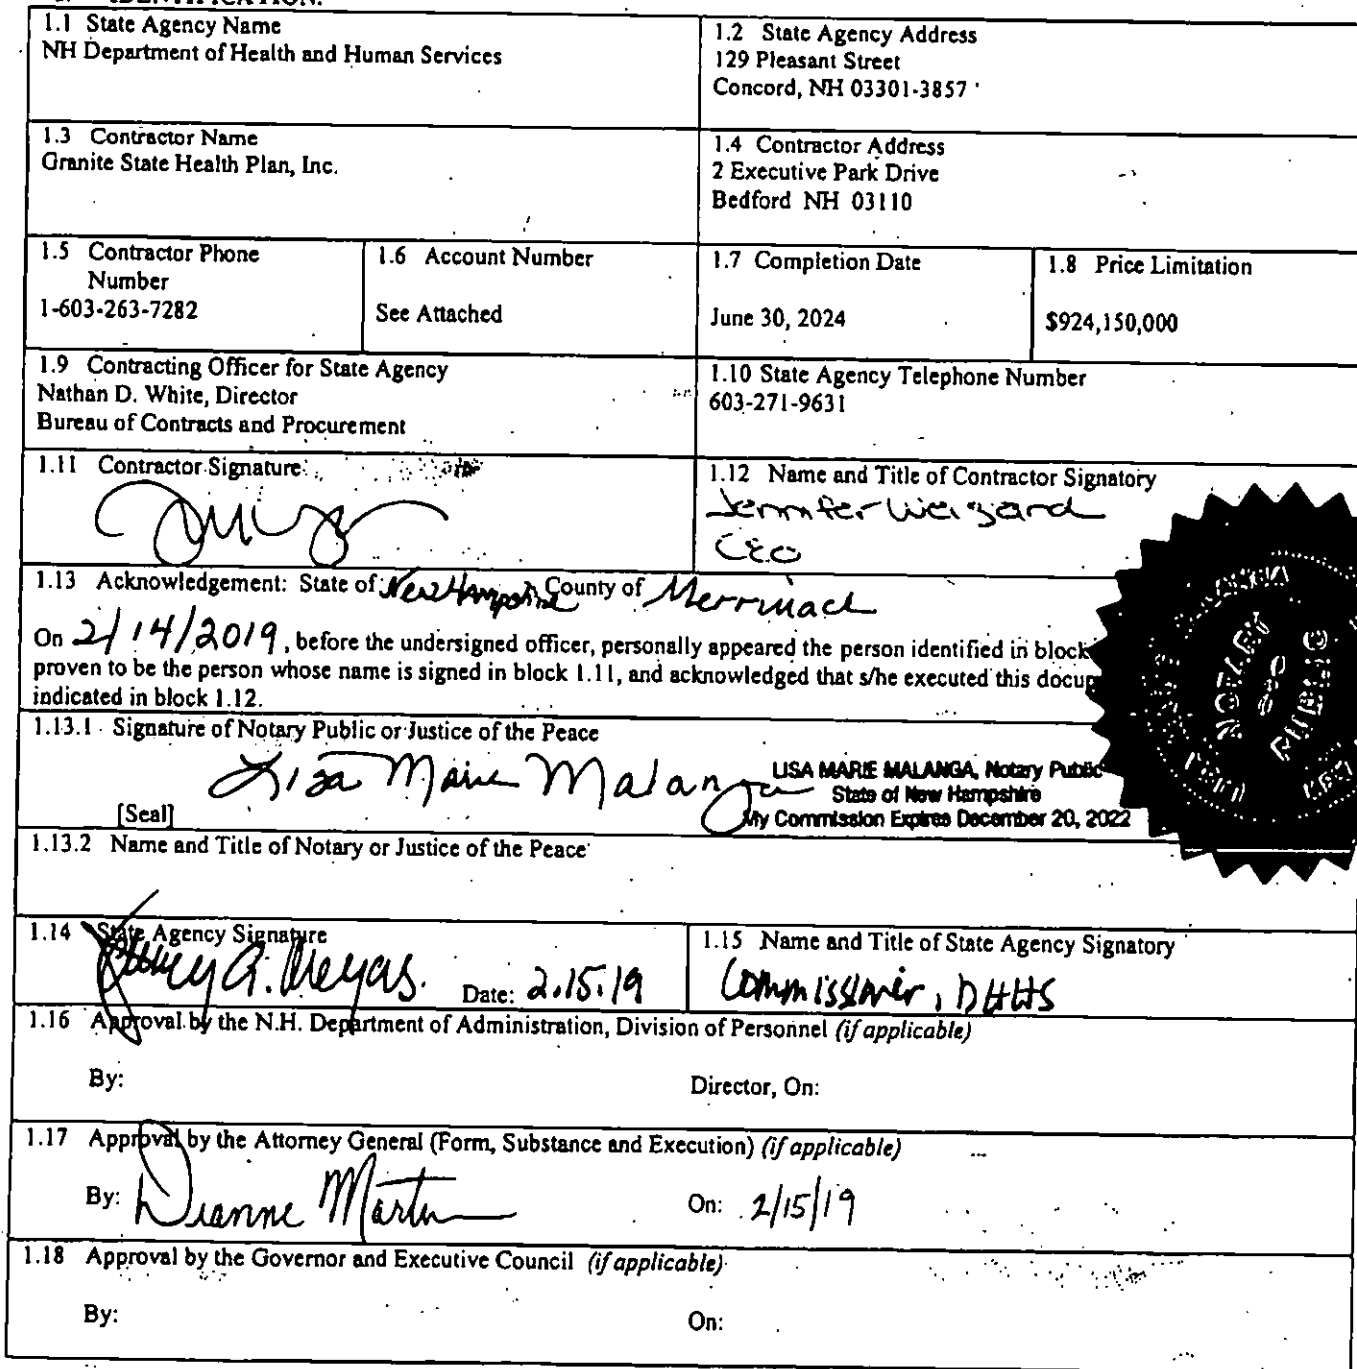 IDENTIFICATION.
1.1 State Agency Name
NH Department of Health and Human Services
1.2 State Agency Address
129 Pleasant Street
Concord, NH 03301-3857
1.3 Contractor Name
Granite State Health Plan, Inc.
1.4 Contractor Address
2 Executive Park Drive
Bedford NH 03110
1.5 Contractor Phone
Number
1-603-263-7282
1.6 Account Number
See Attached
1.7 Completion Date
June 30, 2024
1.8 Price Limitation
$924,150,000
1.9 Contracting Officer for State Agency
Nathan D. White, Director
Bureau of Contracts and Procurement
1.10 State Agency Telephone Number
603-271-9631
1.11 Contractor Signature
1.12 Name and Title of Contractor Signatory
Jennifer Weigand
CEO
1.13 Acknowledgement: State of New Hampshire County of Merrimack
On 2/14/2019, before the undersigned officer, personally appeared the person identified in block
proven to be the person whose name is signed in block 1.11, and acknowledged that s/he executed this docum
indicated in block 1.12.
1.13.1 Signature of Notary Public or Justice of the Peace
Lisa Marie Malanga
LISA MARIE MALANGA, Notary Public
State of New Hampshire
My Commission Expires December 20, 2022
[Seal]
NOTARY
PUBLIC
1.13.2 Name and Title of Notary or Justice of the Peace
1.14 State Agency Signature
Date: 2.15.19
1.15 Name and Title of State Agency Signatory
Commissioner, DHHS
1.16 Approval by the N.H. Department of Administration, Division of Personnel (if applicable)
By:
Director, On:
1.17 Approval by the Attorney General (Form, Substance and Execution) (if applicable)
By: Dianne Martin
On: 2/15/19
1.18 Approval by the Governor and Executive Council (if applicable)
By:
On: